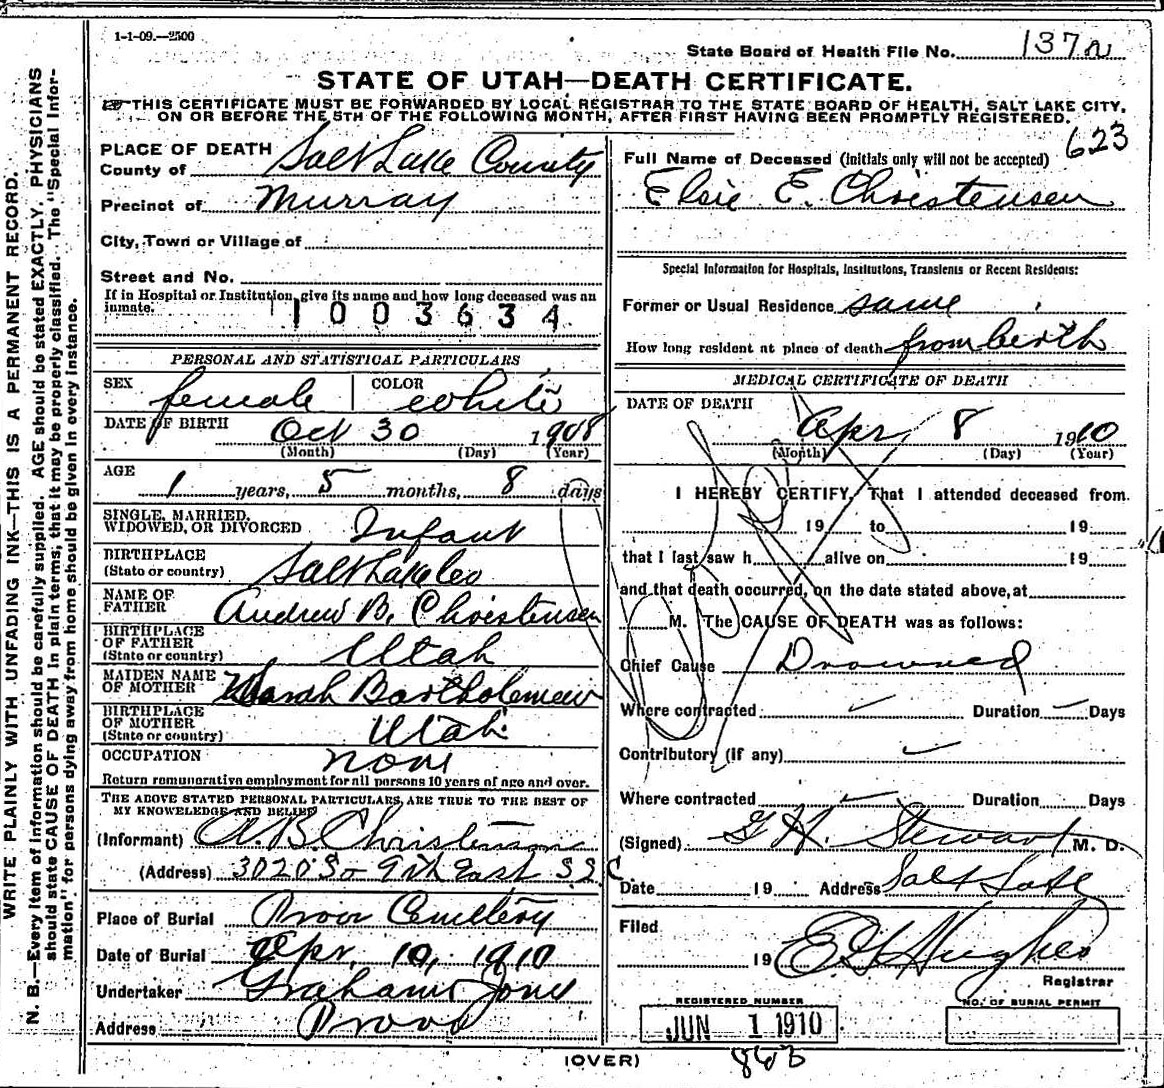 1-1-09.—2500
State Board of Health File No. 137
STATE OF UTAH—DEATH CERTIFICATE.
THIS CERTIFICATE MUST BE FORWARDED BY LOCAL REGISTRAR TO THE STATE BOARD OF HEALTH, SALT LAKE CITY,
ON OR BEFORE THE 5TH OF THE FOLLOWING MONTH, AFTER FIRST HAVING BEEN PROMPTLY REGISTERED.
WRITE PLAINLY WITH UNFADING INK—THIS IS A PERMANENT RECORD.
N. B.—Every item of information should be carefully supplied. AGE should be stated EXACTLY. PHYSICIANS
should state CAUSE OF DEATH in plain terms, that it may be properly classified. The "Special Infor-
mation" for persons dying away from home should be given in every instance.
PLACE OF DEATH
County of Salt Lake County
Precinct of Murray
City, Town or Village of
Street and No.
If in Hospital or Institution, give its name and how long deceased was an
inmate.
1003634
PERSONAL AND STATISTICAL PARTICULARS
SEX female COLOR white
DATE OF BIRTH Oct 30 1908
(Month) (Day) (Year)
AGE 1 years, 5 months, 8 days
SINGLE, MARRIED,
WIDOWED, OR DIVORCED Infant
BIRTHPLACE
(State or country) Salt Lake Co
NAME OF
FATHER Andrew B. Christensen
BIRTHPLACE
OF FATHER
(State or country) Utah
MAIDEN NAME
OF MOTHER Sarah Bartholomew
BIRTHPLACE
OF MOTHER
(State or country) Utah
OCCUPATION None
Return remunerative employment for all persons 10 years of age and over.
THE ABOVE STATED PERSONAL PARTICULARS ARE TRUE TO THE BEST OF
MY KNOWLEDGE AND BELIEF
(Informant) A. B. Christensen
(Address) 3020 So 9th East S.L.C.
Place of Burial Provo Cemetery
Date of Burial Apr. 10, 1910
Undertaker Graham Jones
Address Provo
623
Full Name of Deceased (Initials only will not be accepted)
Elsie E. Christensen
Special Information for Hospitals, Institutions, Transients or Recent Residents:
Former or Usual Residence same
How long resident at place of death from birth
MEDICAL CERTIFICATE OF DEATH
DATE OF DEATH
Apr, 8 1910
(Month) (Day) (Year)
I HEREBY CERTIFY, That I attended deceased from
19 to 19
that I last saw h alive on 19
and that death occurred, on the date stated above, at
M. The CAUSE OF DEATH was as follows:
Chief Cause Drowned
Where contracted Duration Days
Contributory (if any)
Where contracted Duration Days
(Signed) G H. Stewart M. D.
Date 19 Address Salt Lake
Filed
19 E G Hughes
Registrar
REGISTERED NUMBER
JUN 1 1910
NO. OF BURIAL PERMIT
(OVER) 863